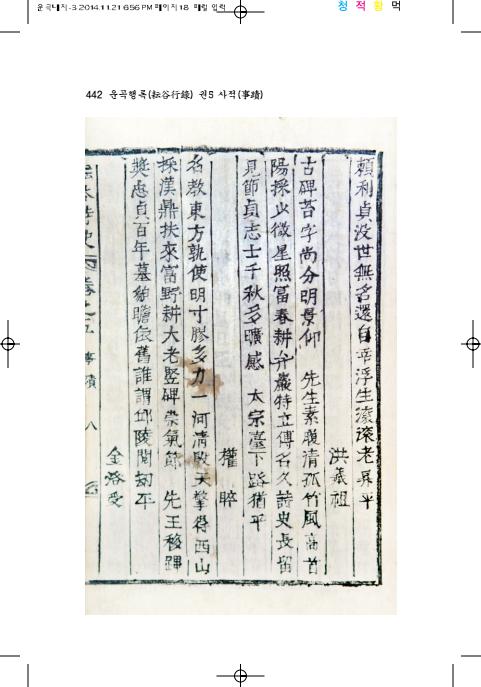 운곡내지-3 2014.11.21 6:56 PM 페이지18 매럴 입력
청 적 황 먹
442 운곡행록(耘谷行錄) 권5 사적(事蹟)
頼利貞没世無名還自幸浮生滚滚老昇平
洪羲祖
古碑苔字尚分明景仰 先生素履清孤竹風高首
陽採少微星照富春耕弁巖特立傳名久詩史長留
見節貞志士千秋多曠感 太宗臺下路猶平
權晬
名教東方孰使明寸膠多力一河清敗天擎得西山
採漢鼎扶來富野耕大老竪碑崇氣節 先王移蹕
奬忠貞百年墓貌瞻依舊誰謂邱陵閱刼平
金洛受
事蹟 八